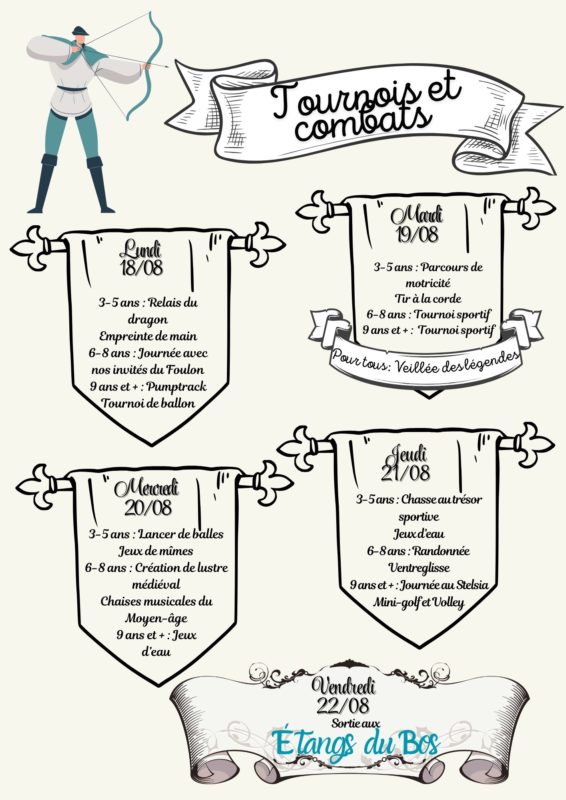 Tournois et
combats
Lundi
18/08
3-5 ans : Relais du
dragon
Empreinte de main
6-8 ans : Journée avec
nos invités du Foulon
9 ans et + : Pumptrack
Tournoi de ballon
Mardi
19/08
3-5 ans : Parcours de
motricité
Tir à la corde
6-8 ans : Tournoi sportif
9 ans et + : Tournoi sportif
Pour tous : Veillée des légendes
Mercredi
20/08
3-5 ans : Lancer de balles
Jeux de mîmes
6-8 ans : Création de lustre
médiéval
Chaises musicales du
Moyen-âge
9 ans et + : Jeux
d'eau
Jeudi
21/08
3-5 ans : Chasse au trésor
sportive
Jeux d'eau
6-8 ans : Randonnée
Ventreglisse
9 ans et + : Journée au Stelsia
Mini-golf et Volley
Vendredi
22/08
Sortie aux
Étangs du Bos